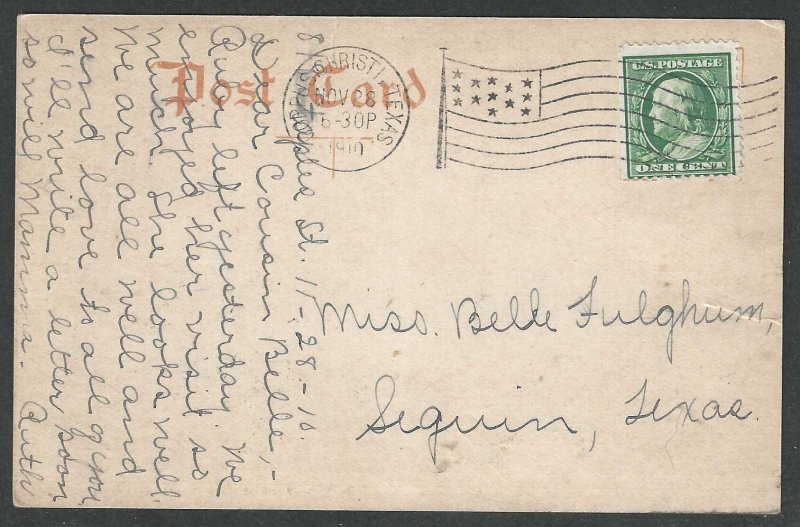 Post Card
CORPUS CHRISTI, TEXAS
NOV 28
6-30P
1910
U.S. POSTAGE
ONE CENT
Miss. Belle Fulghum,
Seguin, Texas.
Staples St. 11-28-10.
Dear Cousin Belle,-
Ruby left yesterday. We
enjoyed her visit so
much. She looks well.
We are all well and
send love to all of you.
I'll write a letter soon
so will Mamma. Ruth